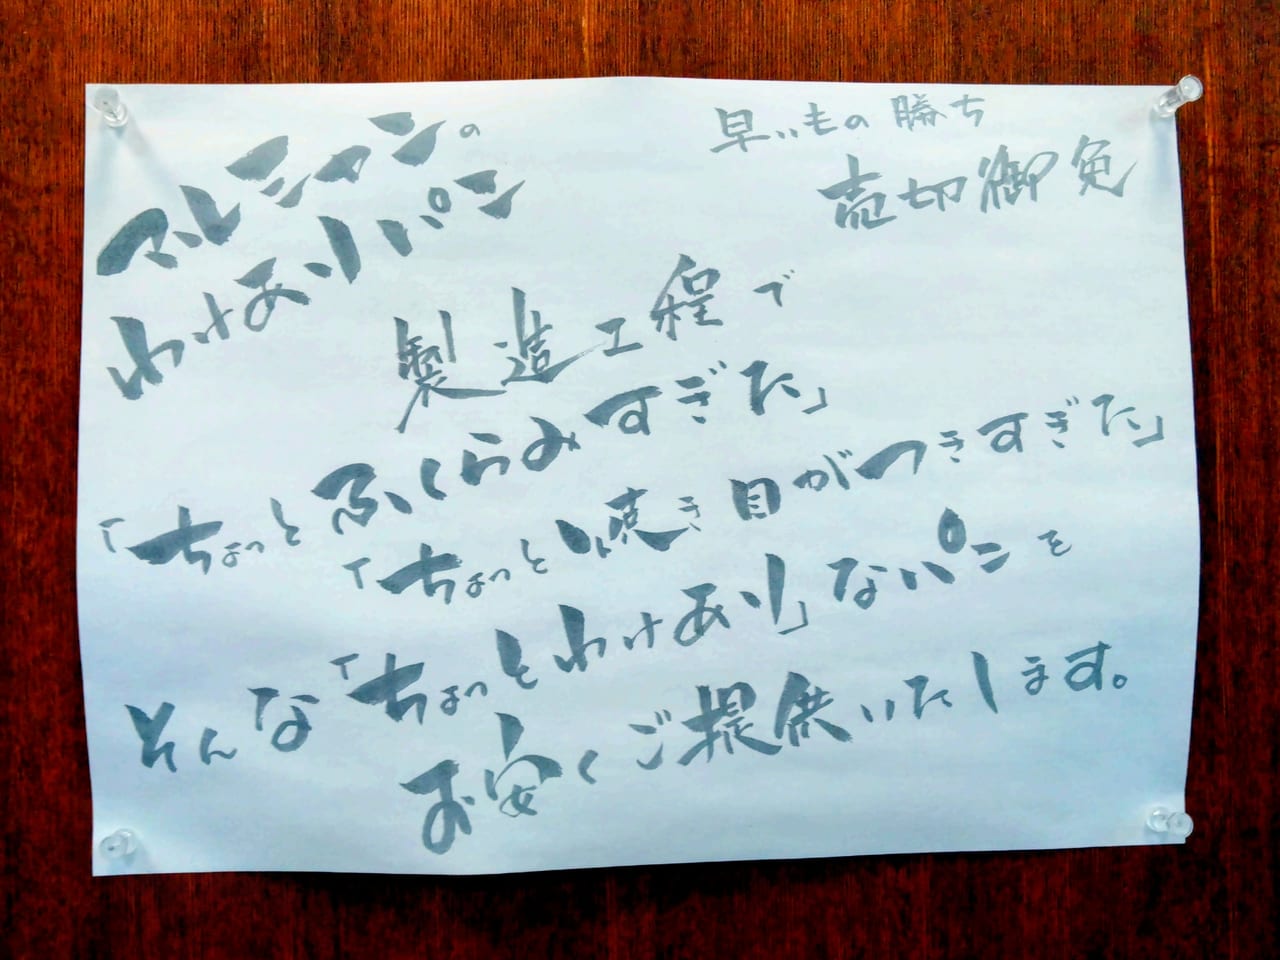 マルシャンの
わけありパン
早いもの勝ち
売切御免
製造工程で
「ちょっとふくらみすぎた」
「ちょっと焼き目がつきすぎた」
そんな「ちょっとわけあり」なパンを
お安くご提供いたします。